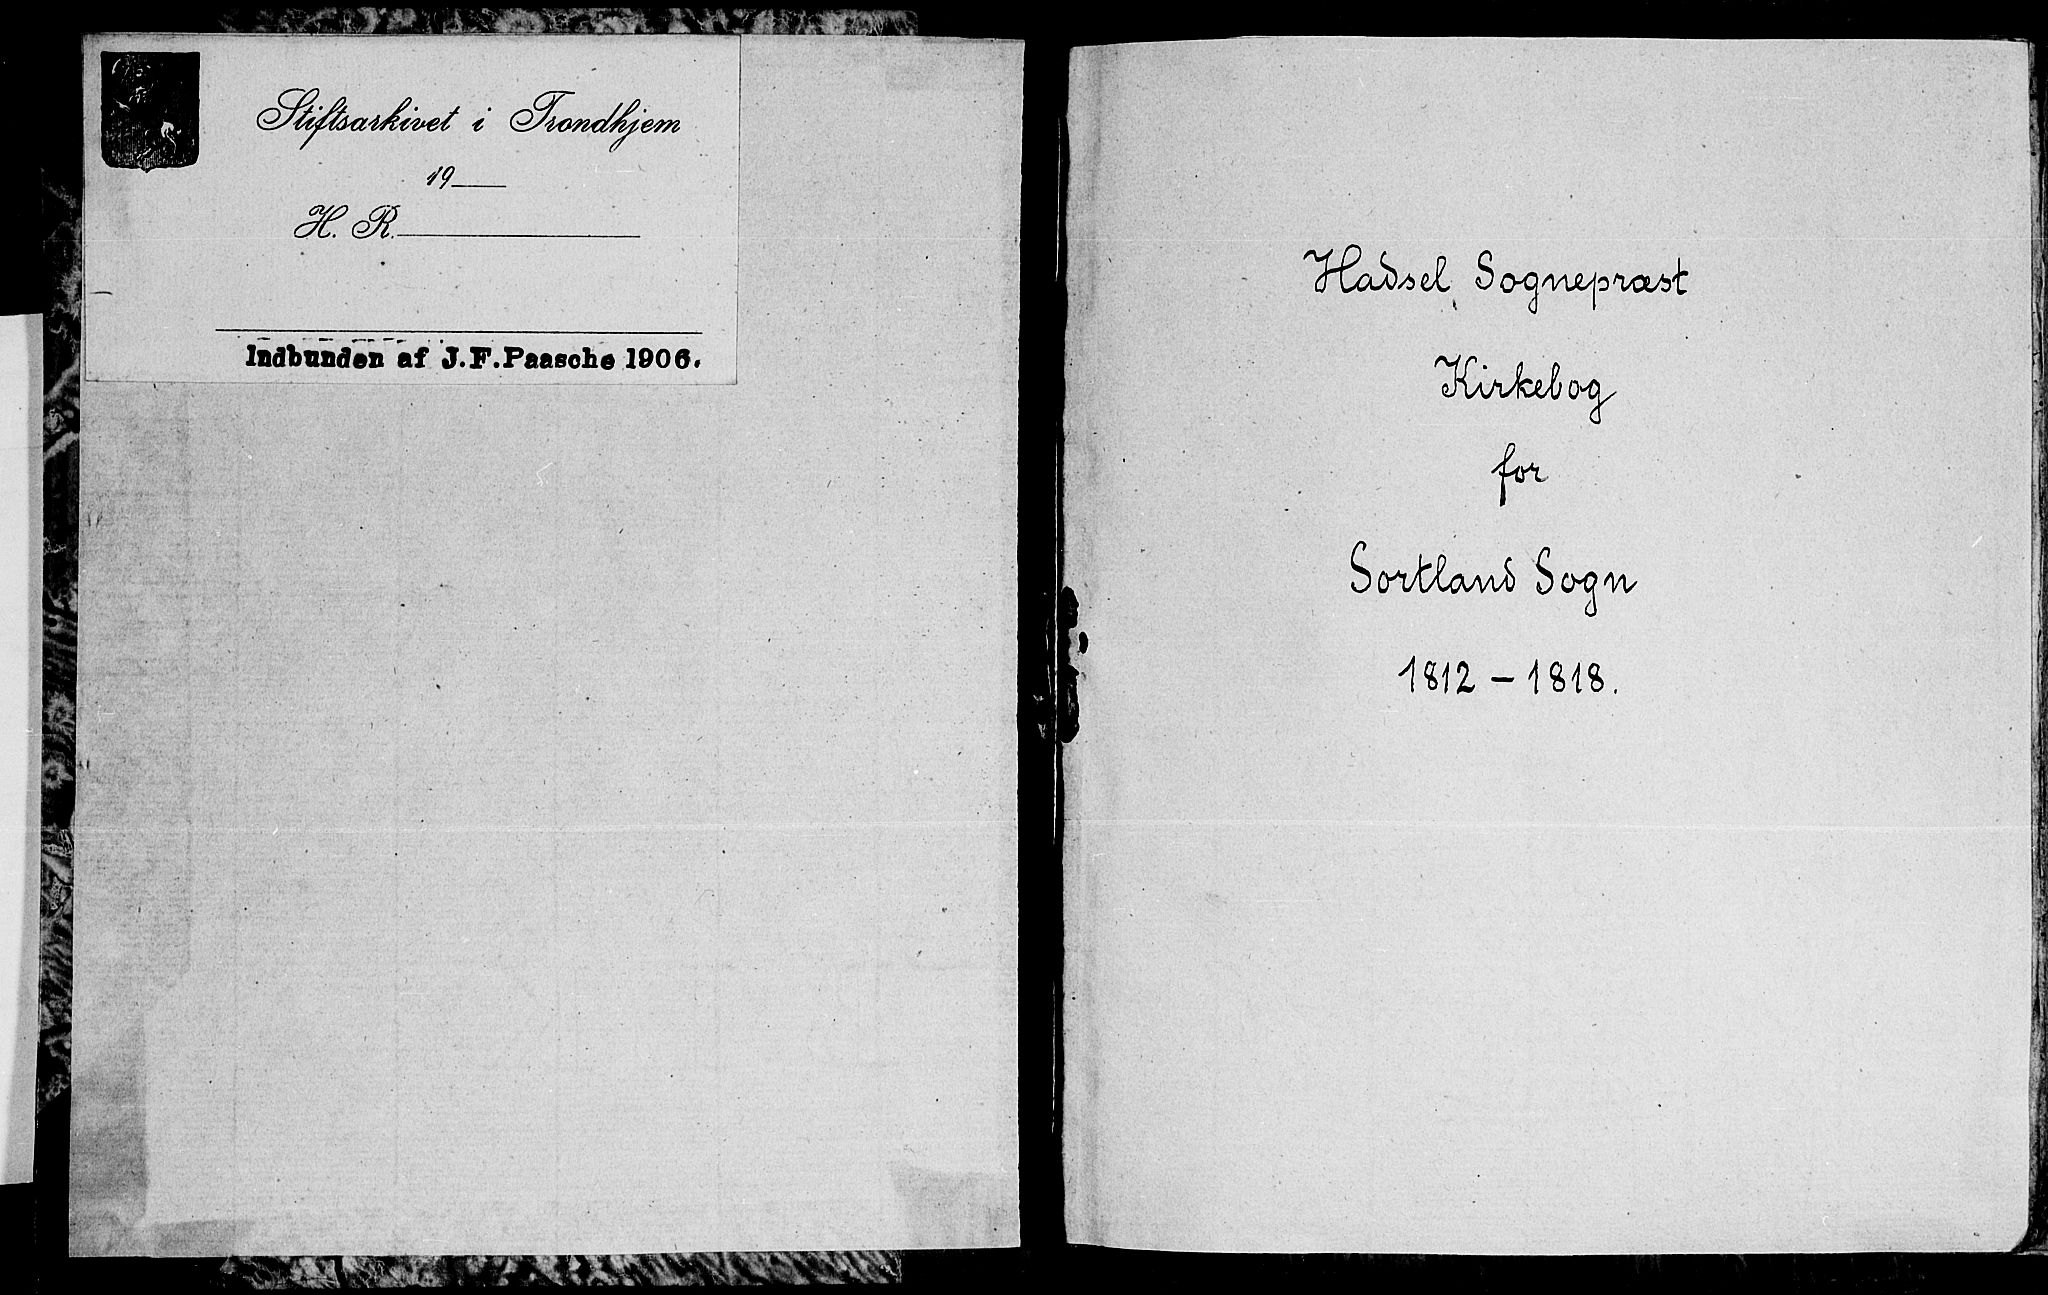 Stiftsarkivet i Trondhjem
19
H. R.
Indbunden af J. F. Paasche 1906.
Hadsel Sognepræst
Kirkebog
for
Sortland Sogn
1812 – 1818.